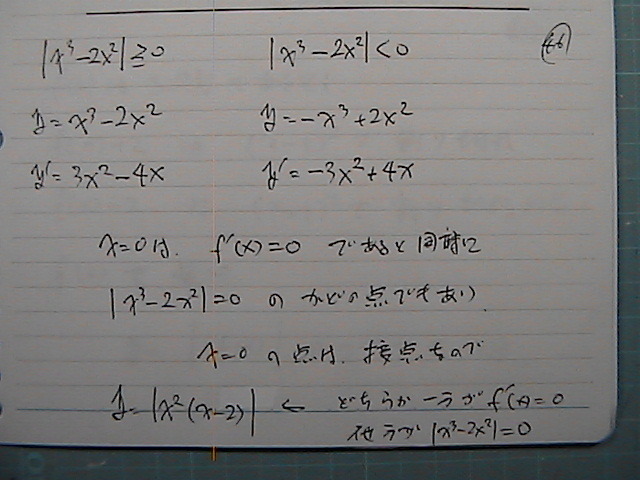 |x³-2x²|≧0 |x³-2x²|<0
y=x³-2x² y=-x³+2x²
y'=3x²-4x y'=-3x²+4x
x=0は、f'(x)=0 であると同時に
|x³-2x²|=0 の かどの点でもあり
x=0 の点は、接点なので
y=|x²(x-2)| ← どちらか一方が f'(x)=0
他方が |x³-2x²|=0